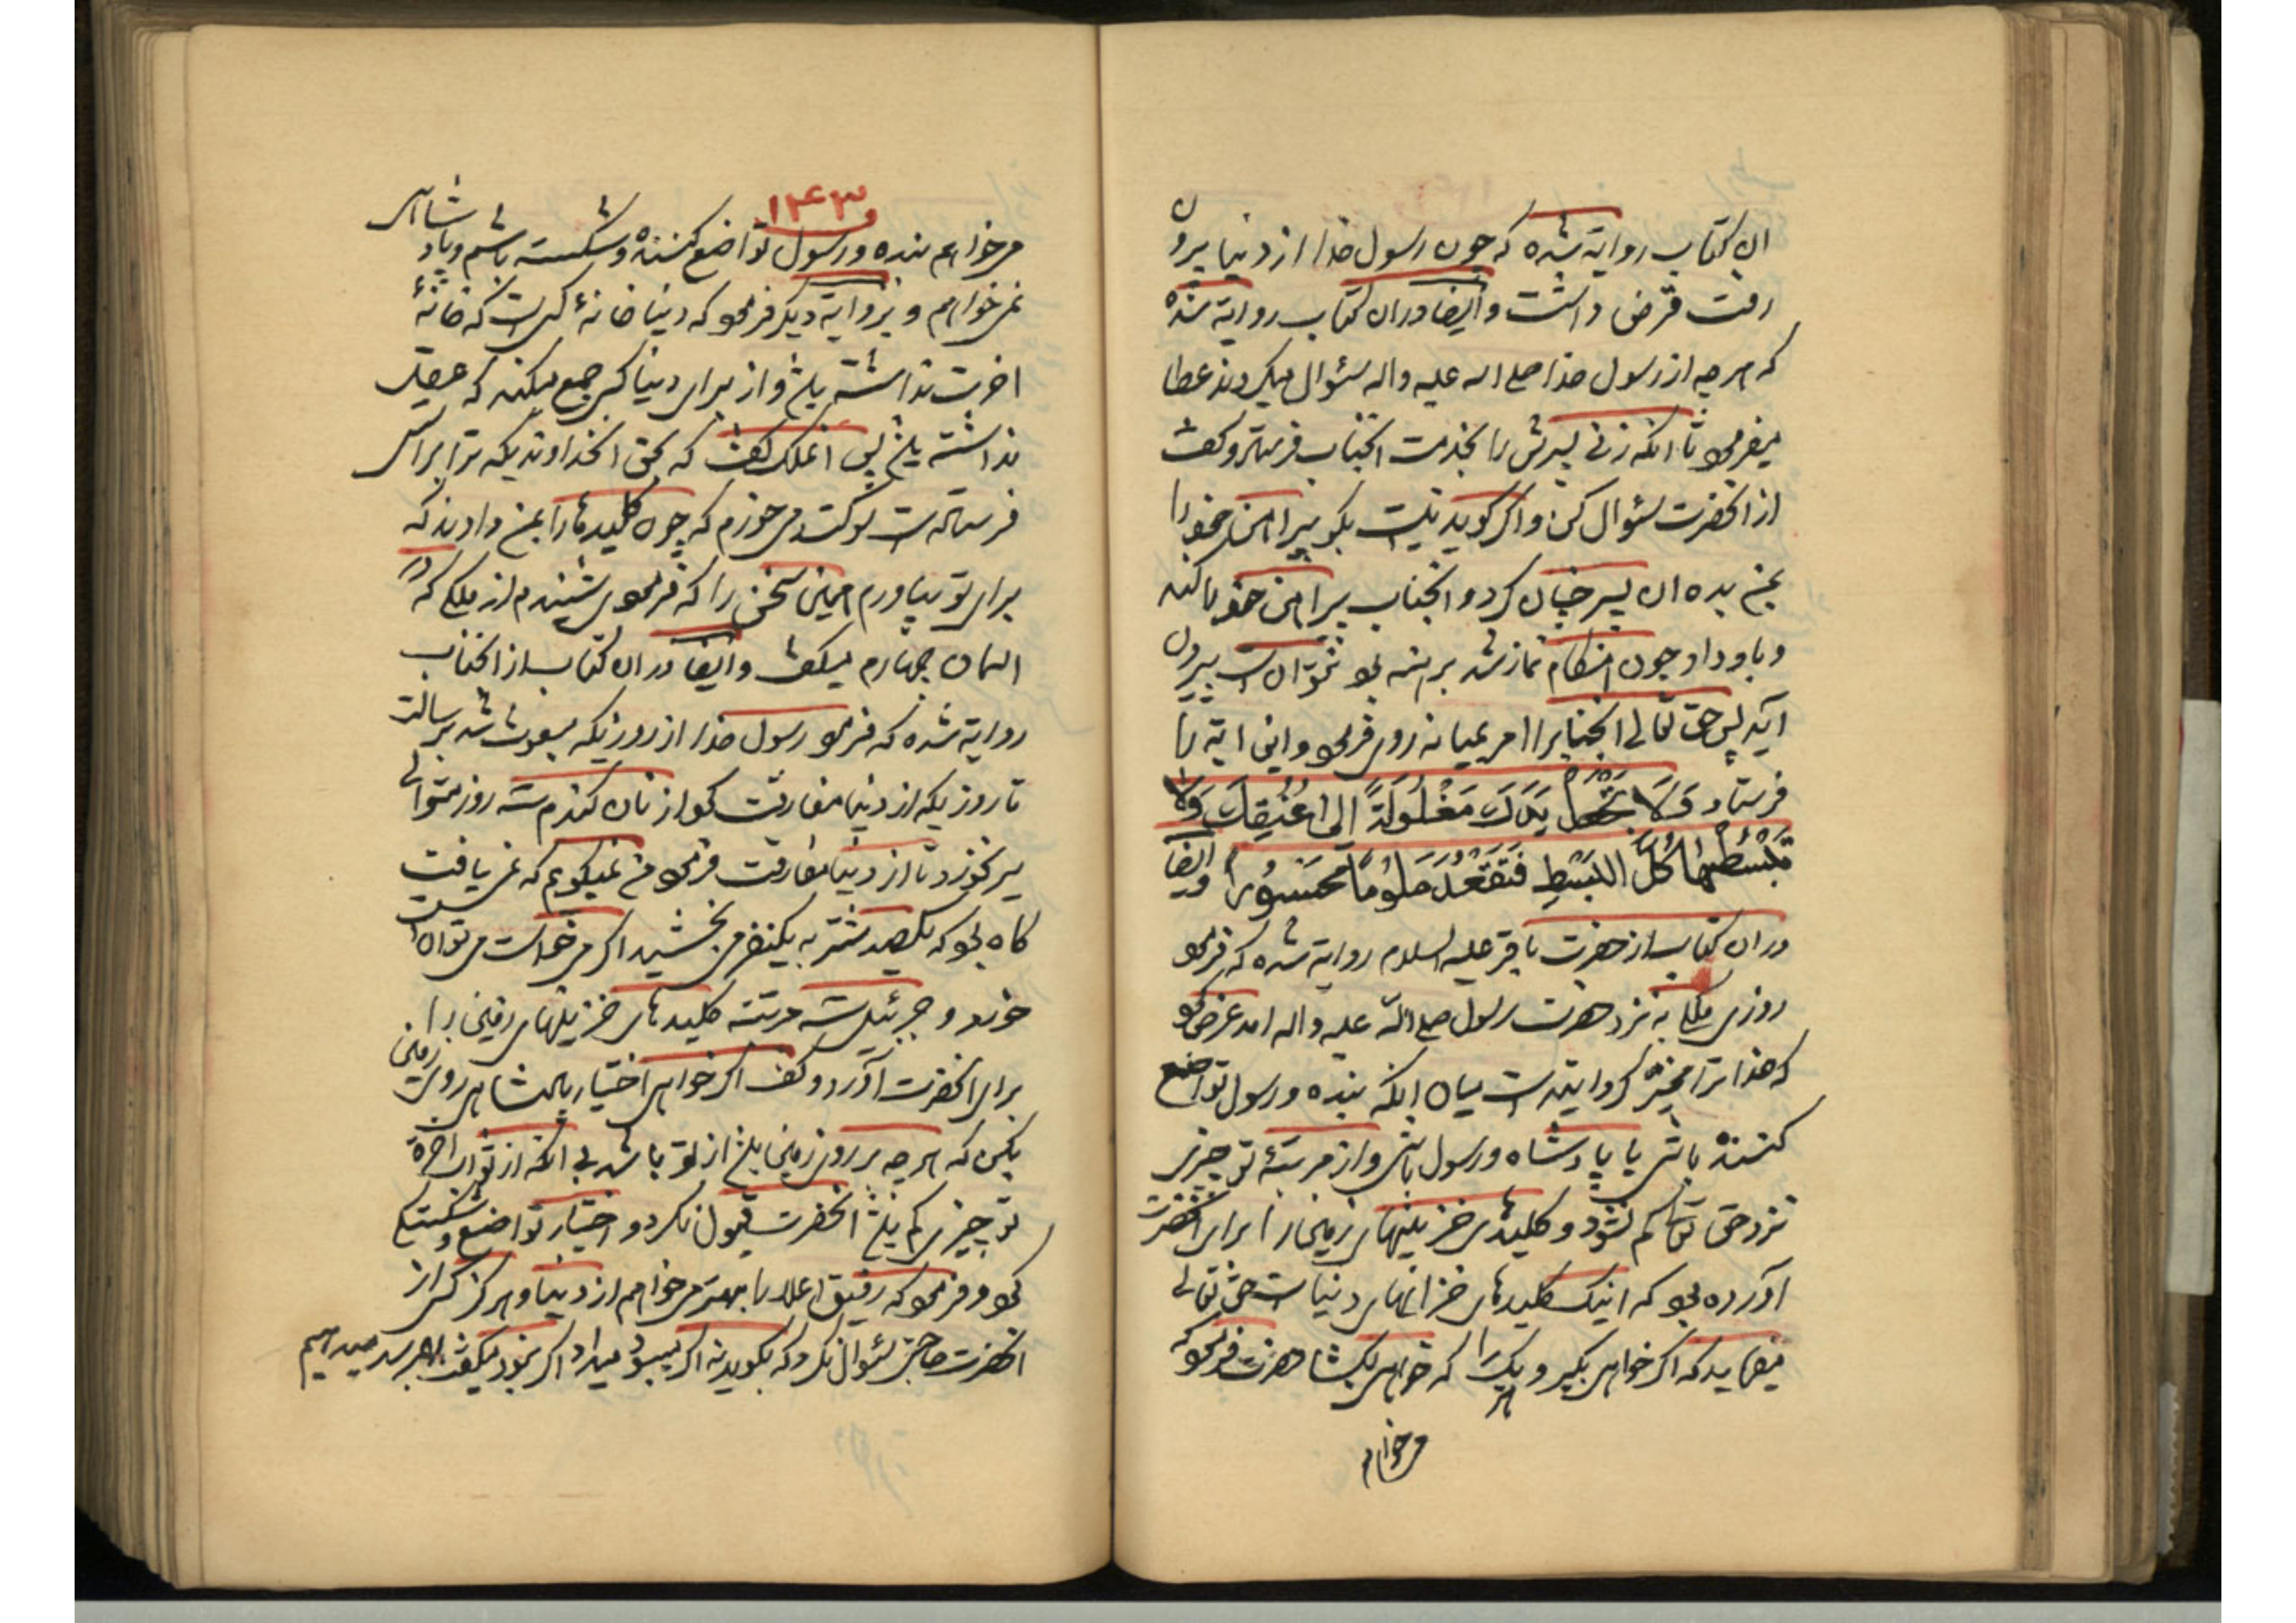 ان کتاب روایة شده که چون رسول خدا از دنیا بیرون
رفت قرض داشت و ایضا در ان کتاب روایة شده
که هر چه از رسول خدا صلی اله علیه واله سئوال میکردند عطا
میفرمود تا انکه زنی پسرش را بخدمت انجناب فرستاد و کفت
از انحضرت سئوال کن و اکر کوید نیست بکو پیراهن خود را
بمن بده ان پسر چنان کرد و انجناب پیراهن خود را کند
و باو داد چون هنکام نماز شد برهنه بود نتوانست بیرون
آید پس حق تعالی انجنابرا امر بمیانه روی فرمود و این ایة را
فرستاد وَلَا تَجْعَلْ یَدَكَ مَغْلُولَةً اِلی عُنُقِكَ وَلا
تَبْسُطْها كُلَّ الْبَسْطِ فَتَقْعُدَ مَلُومًا مَحْسُورًا وایضا
در ان کتاب از حضرت باقر علیه السلام روایة شده که فرمود
روزی ملکی به نزد حضرت رسول صلی الله علیه واله امد عرض کرد
که خدا ترا مخیر کردانیده است میان انکه بنده و رسول تواضع
کننده باشی یا پادشاه و رسول باشی و از مرتبهٔ تو چیزی
نزد حق تعالی کم نشود و کلیدهای خزینهای زمین را برای انحضرت
آورده بود که اینک کلیدهای خزانهای دنیاست حق تعالی
میفرماید که اکر خواهی بکیر و هر یک را که خواهی بکشا حضرت فرمود که
میخواهم
۱۴۳
میخواهم بنده و رسول تواضع کننده و شکسته باشم و پادشاهی
نمیخواهم و بروایة دیکر فرمود که دنیا خانهٔ کسی است که خانهٔ
اخرت نداشته باشد و از برای دنیا کسی جمع میکند که عقل
نداشته باشد پس انملک کفت که بحق انخداوندیکه ترا براستی
فرستاده است سوکند میخورم که چون کلیدها را بمن دادند که
برای تو بیاورم همین سخن را که فرمودی شنیدم از ملکی که در
اسمان چهارم میکفت و ایضا در ان کتاب از انجناب
روایة شده که فرمود رسول خدا از روزیکه مبعوث شد برسالت
تا روزیکه از دنیا مفارقت کرد از نان کندم سه روز متوالی
سیر نخورد تا از دنیا مفارقت فرمود من نمیکویم که نمی یافت
کاه بود که یکصد شتر به یکنفر می بخشید اکر میخواست می توانست
خورد و جبرئیل سه مرتبه کلیدهای خزینهای زمین را
برای انحضرت آورد و کفت اکر خواهی اختیار پادشاهی روی زمین
بکن که هر چه بر روی زمین باشد از تو باشد بی انکه از ثواب اخرة
تو چیزی کم باشد انحضرت قبول نکرد و اختیار تواضع و شکستکی
نمود و فرمود که رفیق اعلا را بهتر میخواهم از دنیا و هرکز کسی از
انحضرت حاجتی سئوال نکرد که بکوید نه اکر میبود میداد اکر نبود میکفت بهم رسد میدهیم